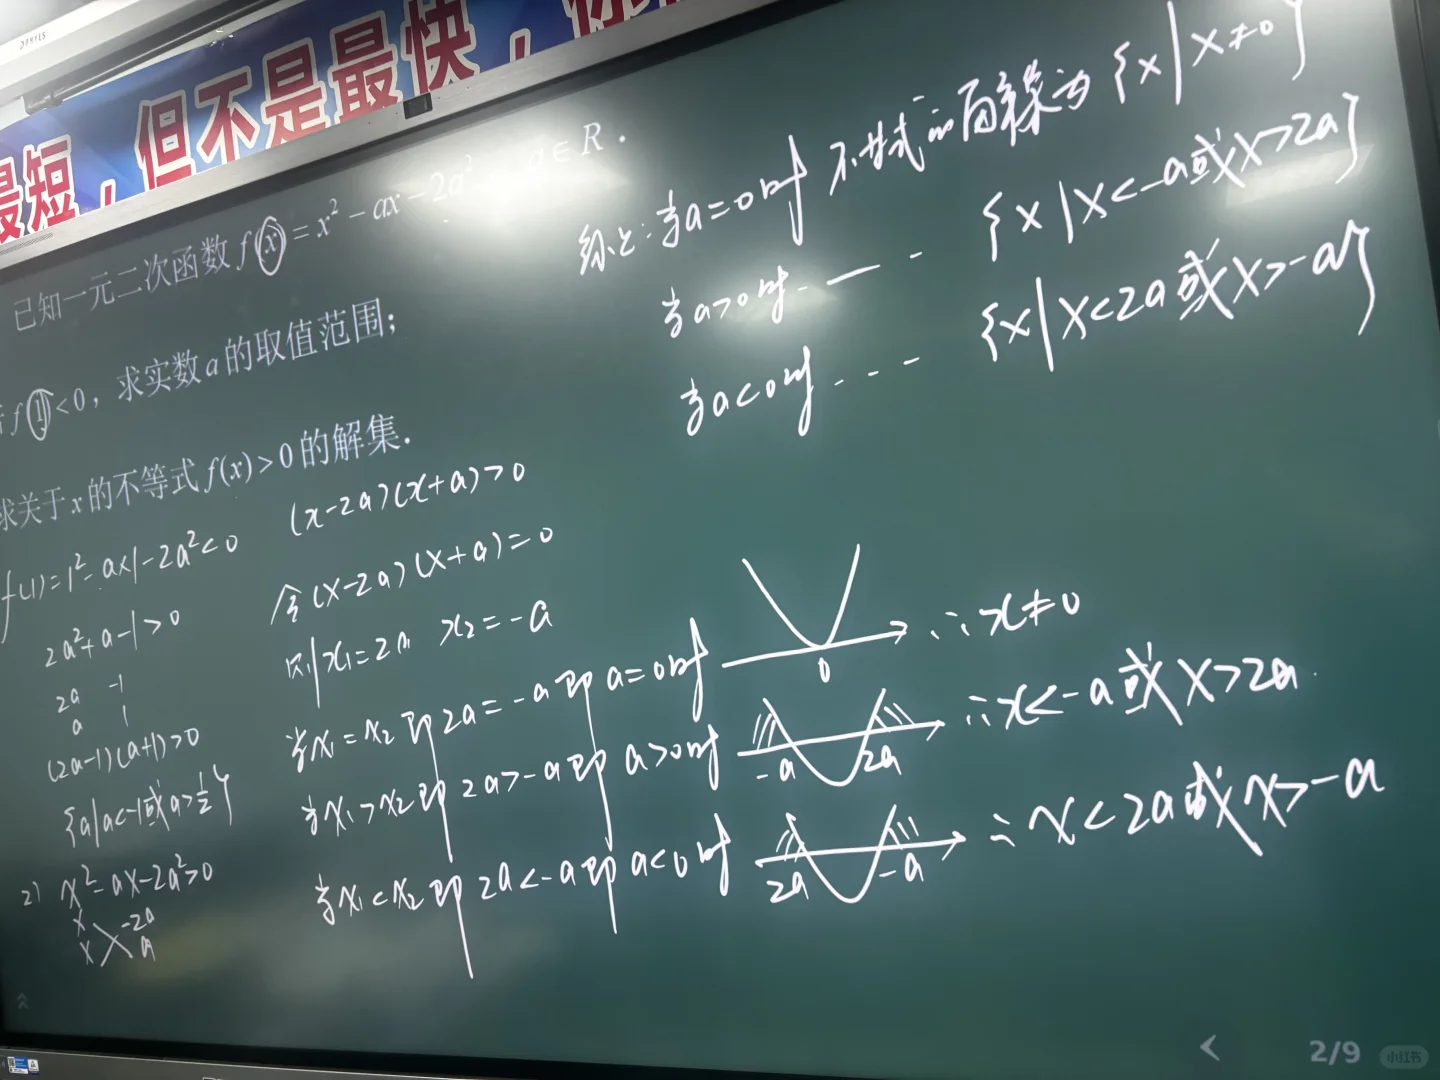 最短，但不是最快，你
已知一元二次函数 f(x) = x² - ax - 2a², a ∈ R.
f(1) < 0，求实数a的取值范围；
求关于x的不等式 f(x) > 0 的解集.
f(1) = 1² - a×1 - 2a² < 0
2a² + a - 1 > 0
2a -1
a 1
(2a-1)(a+1) > 0
{a|a<-1或a>1/2}
2) x² - ax - 2a² > 0
x -2a
x a
(x-2a)(x+a) > 0
令(x-2a)(x+a) = 0
则 x₁ = 2a x₂ = -a
当x₁ = x₂ 即 2a = -a 即 a = 0时
0
∴ x ≠ 0
当x₁ > x₂ 即 2a > -a 即 a > 0时
-a 2a
∴ x < -a 或 x > 2a
当x₁ < x₂ 即 2a < -a 即 a < 0时
2a -a
∴ x < 2a 或 x > -a
综上: 当a = 0时 不等式的解集为 {x|x≠0}
当a>0时 . — . {x|x<-a或x>2a}
当a<0时 . - - {x|x<2a或x>-a}
2/9
小红书